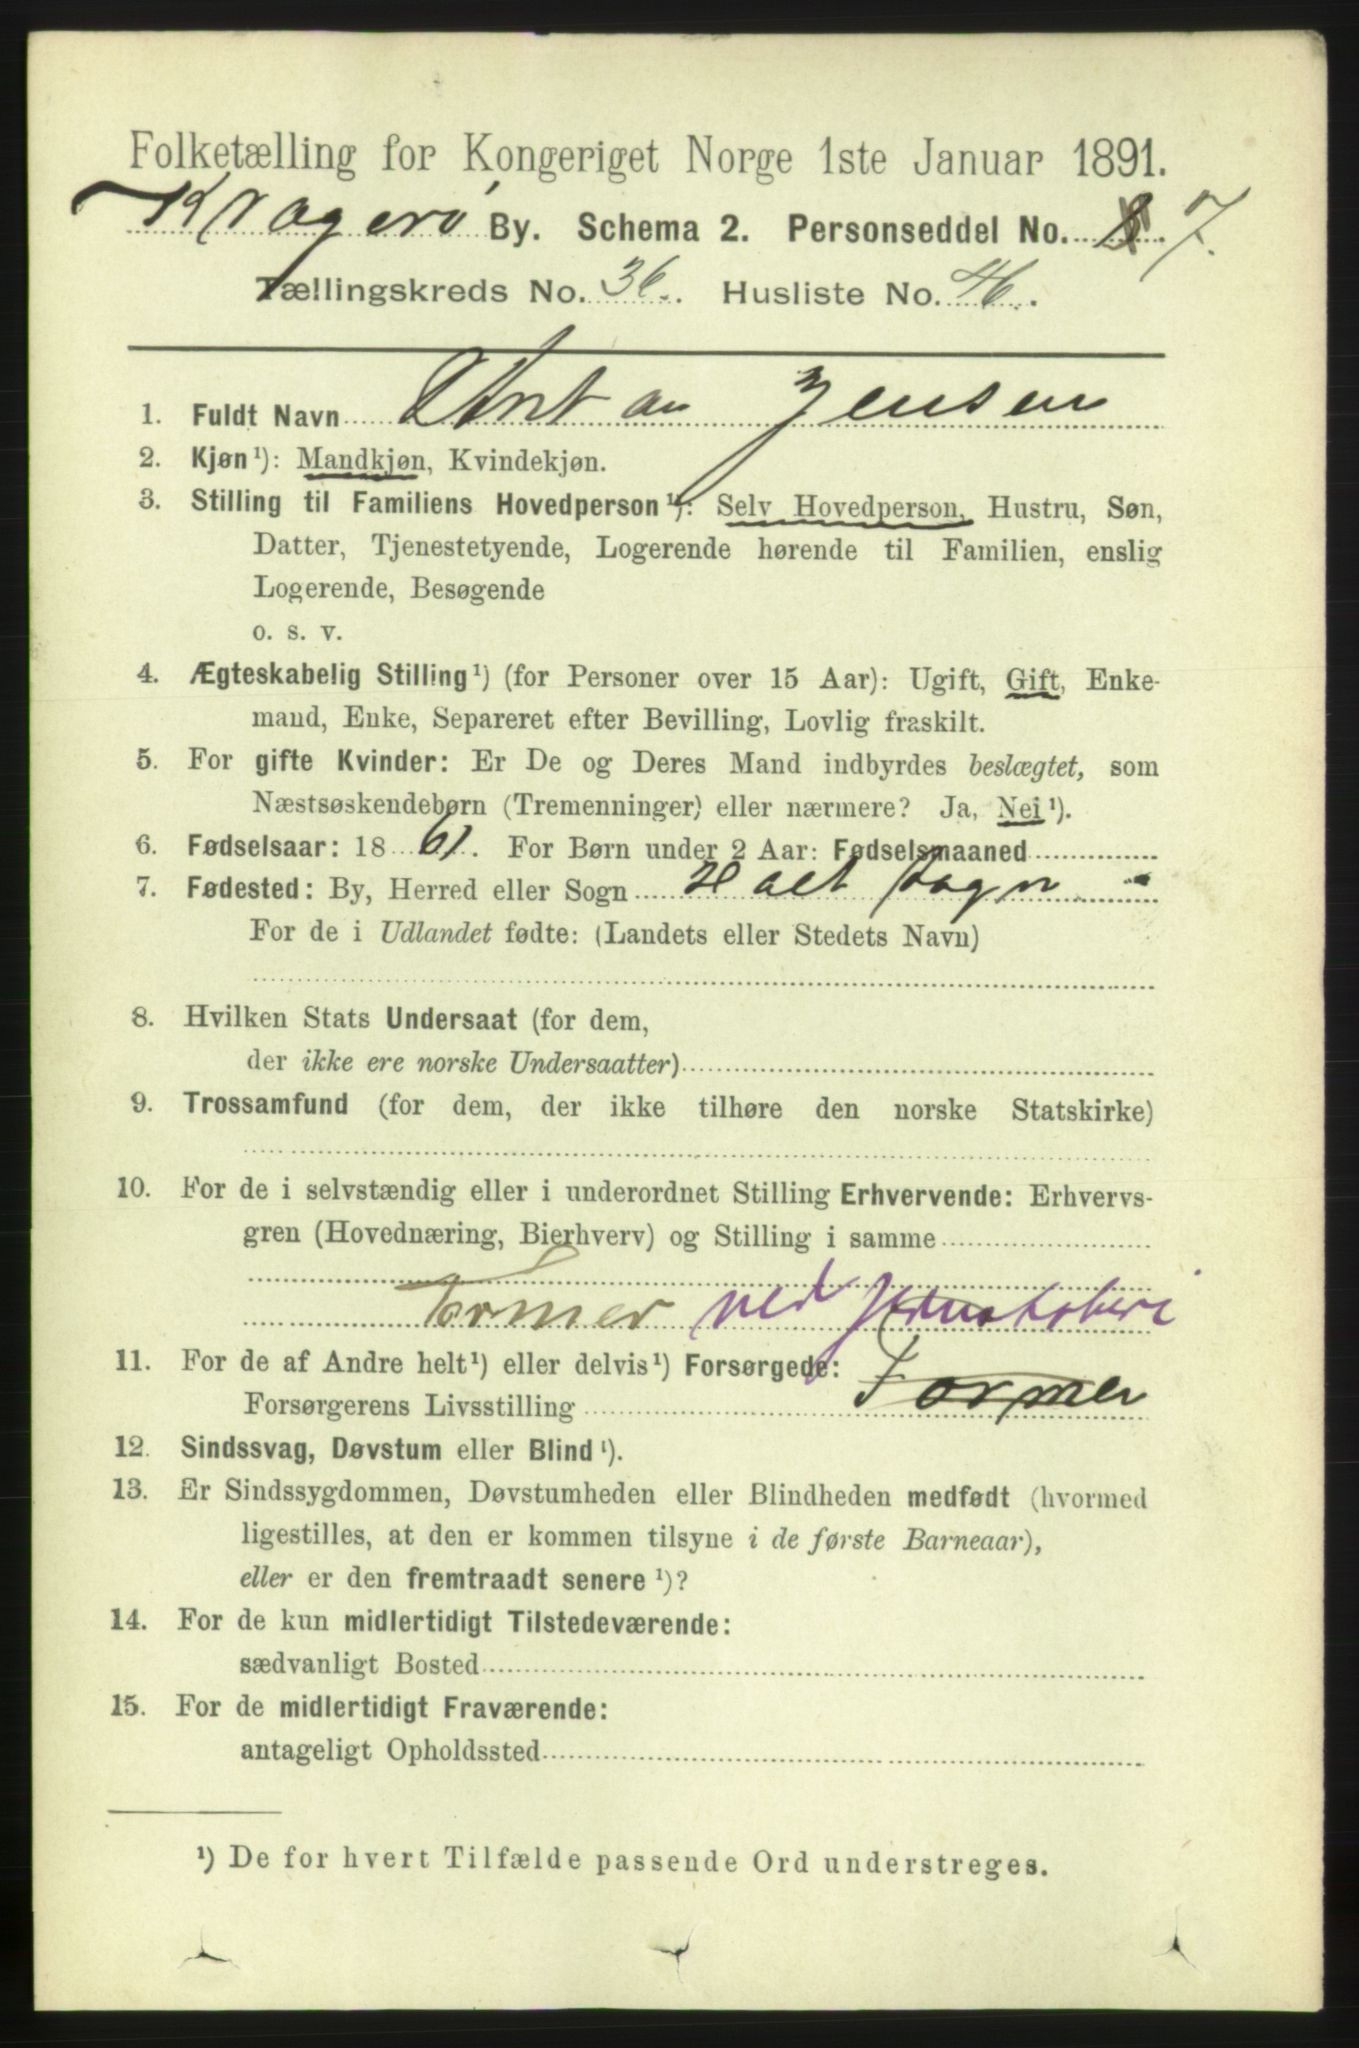 Folketælling for Kongeriget Norge 1ste Januar 1891.
Kragerø By. Schema 2. Personseddel No. 8 7.
Tællingskreds No. 36. Husliste No. 46.
1. Fuldt Navn Anton Jensen
2. Kjøn¹): Mandkjøn, Kvindekjøn.
3. Stilling til Familiens Hovedperson¹): Selv Hovedperson, Hustru, Søn,
Datter, Tjenestetyende, Logerende hørende til Familien, enslig
Logerende, Besøgende
o. s. v.
4. Ægteskabelig Stilling¹) (for Personer over 15 Aar): Ugift, Gift, Enke-
mand, Enke, Separeret efter Bevilling, Lovlig fraskilt.
5. For gifte Kvinder: Er De og Deres Mand indbyrdes beslægtet, som
Næstsøskendebørn (Tremenninger) eller nærmere? Ja, Nei¹).
6. Fødselsaar: 1861. For Børn under 2 Aar: Fødselsmaaned
7. Fødested: By, Herred eller Sogn Holt Sogn
For de i Udlandet fødte: (Landets eller Stedets Navn)
8. Hvilken Stats Undersaat (for dem,
der ikke ere norske Undersaatter)
9. Trossamfund (for dem, der ikke tilhøre den norske Statskirke)
10. For de i selvstændig eller i underordnet Stilling Erhvervende: Erhvervs-
gren (Hovednæring, Bierhverv) og Stilling i samme
Former ved Jernstøberi
11. For de af Andre helt¹) eller delvis¹) Forsørgede:
Forsørgerens Livsstilling Former
12. Sindssvag, Døvstum eller Blind¹).
13. Er Sindssygdommen, Døvstumheden eller Blindheden medfødt (hvormed
ligestilles, at den er kommen tilsyne i de første Barneaar),
eller er den fremtraadt senere¹)?
14. For de kun midlertidigt Tilstedeværende:
sædvanligt Bosted
15. For de midlertidigt Fraværende:
antageligt Opholdssted
¹) De for hvert Tilfælde passende Ord understreges.